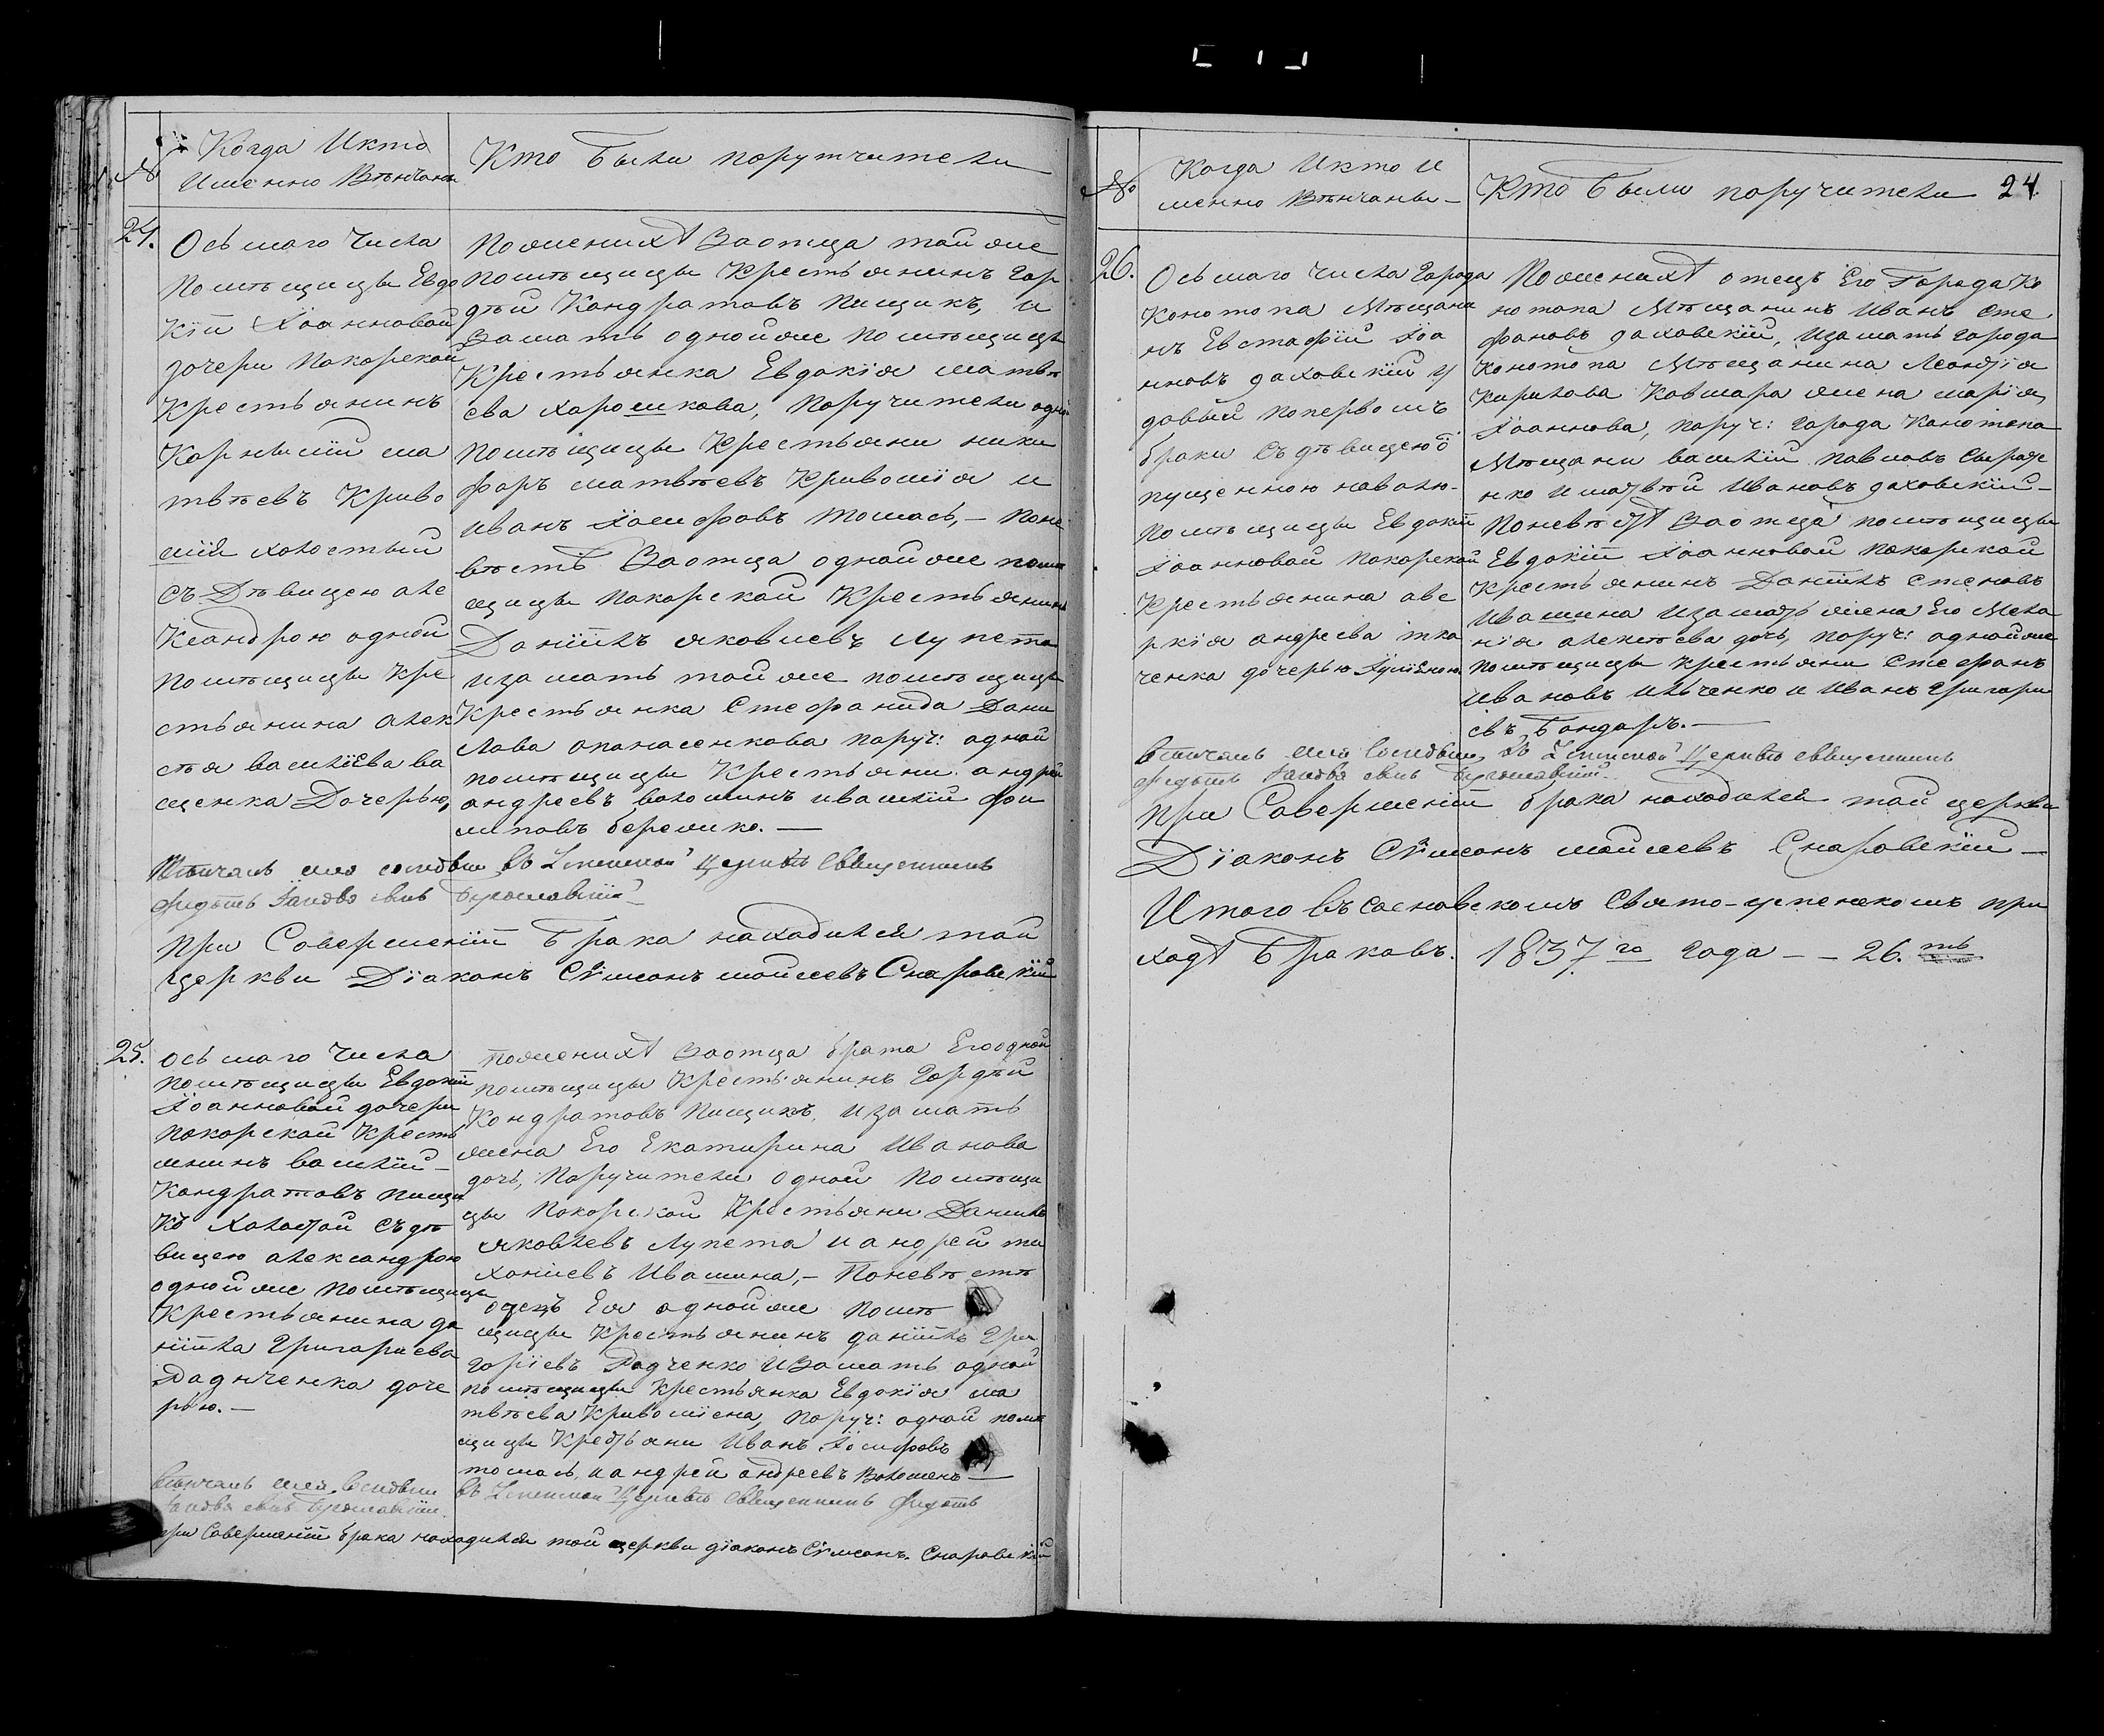 №
Когда Икто
Именно Вѣнчаны
Кто были порутчители
24.
Осьмаго Числа
Помѣщицы Евдо
кіи Іоанновой
дочери Покорской
Крестьянинъ
Корнылій ма
твѣевъ Криво
шія холостый
съ Дѣвицею але
Ксандрою одной
помѣщицы Кре
стьянина алек
сѣя васильева ва
щенка Дочерью,
Поженихѣ Заотца той же
помѣщицы Крестьянинъ Гор
дѣй Кондратовъ Пищикъ, и
Заматъ однойже помѣщицы
Крестьянка Евдокія матвѣ
ева хорошкова, Поручители одной
помѣщицы Крестьяни ники
форъ матвѣевъ Кривошія и
иванъ Іосифовъ томась, – Поне
вѣстѣ Заотца однойже помѣ
щицы Покорской Крестьянинъ
Даніилъ яковлевъ лупета
изаматъ тойже помѣщицы
Крестьянка Стефанида Дани
лова опанасенкова Поруч: одной
помѣщицы Крестьяни андрей
андреевъ волошинъ ивасилій фи
липовъ бережко. —
Вѣнчалъ сія въ Церкви Священникъ
При Совершеніи Брака находился той
церкви Діаконъ Сѵмеонъ мойсеевъ Снаровскій
25.
Осьмаго Числа
помѣщицы Евдокіи
Іоанновой дочери
Покорской Кресть
янинъ василій –
Кондратовъ пищи
къ Холостой съ дѣ
вицею александрою
однойже помѣщицы
Крестьянина да
ніила Григориева
Дадченка доче
рью. –
Поженихѣ Заотца брата Его одной
помѣщицы Крестьянинъ Гордѣй
Кондратовъ Пищикъ, изаматъ
жена Его Екатирина Иванова
дочь, Поручители одной Помѣщи
цы Покорской Крестьяни Данилъ
яковлевъ лупета и андрей ти
хоніевъ Ивашина, – Поневѣстѣ
отецъ Ея однойже помѣ
щицы Крестьянинъ даніилъ Гри
горіевъ Дадченко иЗаматъ одной
помѣщицы Крестьянка Евдокія ма
твѣева Кривошіена, Поруч: одной помѣ
щицы Крестьяни Иванъ Іосифовъ
томась, и андрей андреевъ Волошенъ —
Вѣнчалъ сія
въ Церкви Священникъ
при Совершеніи брака находился той церкви діаконъ Сѵмеонъ. Снаровскій
№
Когда Икто И
менно Вѣнчаны –
Кто были поручители
24.
26.
Осьмаго числа Города
Конотопа Мѣщани
нъ Евстафій Іоа
нновъ даховскій у
довый поперво мъ
браки съ дѣвицею о
пущенною наволю–
Помѣщицы Евдокіи
Іоанновой Покорской
Крестьянина аве
ркія андреева тка
ченка дочерью Іуліяною
Поженихѣ отецъ Его Города Ко
нотопа Мѣщанинъ Иванъ сте
фановъ даховскій, изаматъ города
Конотопа Мѣщанина Леонтія
Кирилова Ковшара жена марія
Іоаннова, поруч: города Конотопа
Мѣщани василій павловъ
нко и матвѣй Ивановъ даховскій –
Поневѣстѣ Заотца помѣщицы
Евдокіи Іоанновой Покорской
Крестьянинъ Даніилъ
Ивашина изаматъ жена Его Мела
нія алексѣева дочь, поруч: однойже
помѣщицы крестьяни Стефанъ
Ивановъ Ильченко и Иванъ Григори
евъ бондаръ. —
Вѣнчалъ сія въ Церкви Священникъ
При Совершеніи брака находился той церкви
Діаконъ Сѵмеонъ мойсеевъ Снаровскій –
Итого въ Сосновскомъ Свято-успенскомъ при
ходѣ Браковъ. 1837го года – – 26.ть